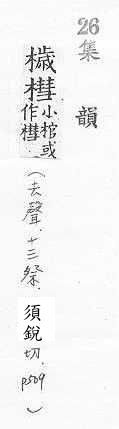 26集韻
槥㯔小棺或作櫘
(去聲.十三祭.須銳切.p509)